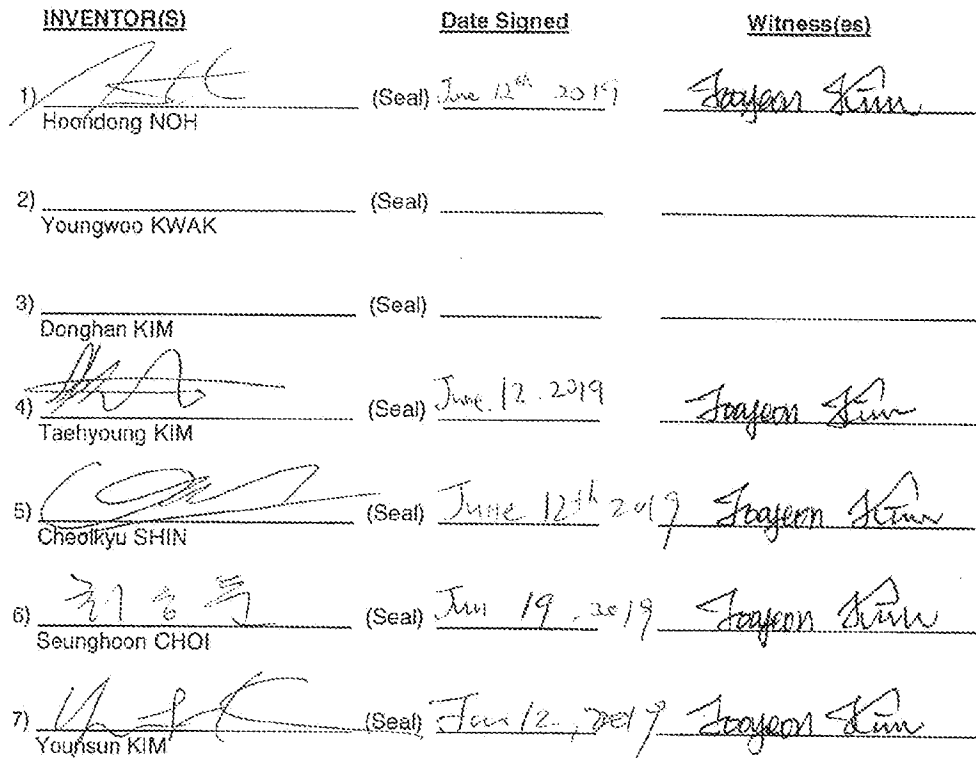 INVENTOR(S) Date Signed Witness(es)
1) (Seal) June 12th 2019 Jooyeon Kim
Hoondong NOH
2) (Seal)
Youngwoo KWAK
3) (Seal)
Donghan KIM
4) (Seal) June. 12. 2019 Jooyeon Kim
Taehyoung KIM
5) (Seal) June 12th 2019 Jooyeon Kim
Cheolkyu SHIN
6) (Seal) Jun 19, 2019 Jooyeon Kim
Seunghoon CHOI
7) (Seal) Jun 12, 2019 Jooyeon Kim
Younsun KIM